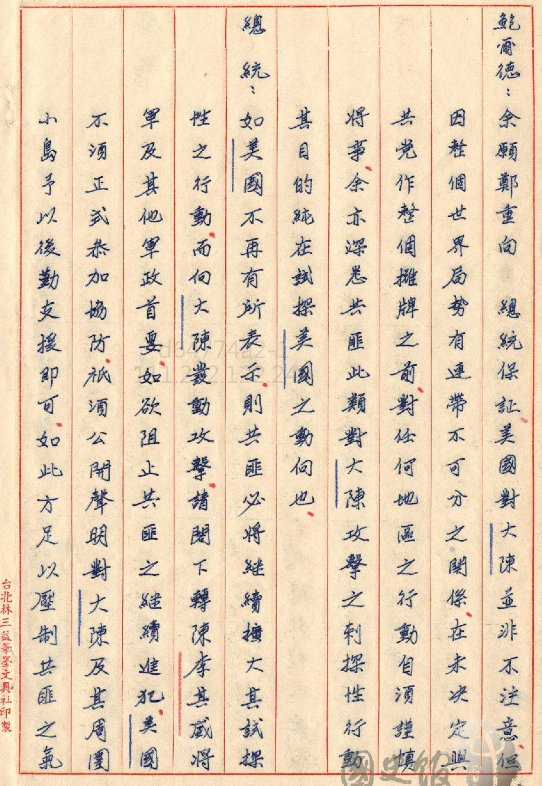 鮑爾德：余願鄭重向　總統保証美國對大陳並非不注意，但
因整個世界局勢有連帶不可分之關係，在未決定與
共党作整個攤牌之前，對任何地區之行動自須謹慎
將事，余亦深悉共匪此類對大陳攻擊之刺探性行動
其目的純在試探美國之動向也。
總　統：如美國不再有所表示，則共匪必將繼續擴大其試探
性之行動，而向大陳發動攻擊，請閣下轉陳李其威將
軍及其他軍政首要，如欲阻止共匪之繼續進犯，美國
不須正式參加協防，祇須公開聲明對大陳及其周圍
小島予以後勤支援即可，如此方足以壓制共匪之氣
台北林三益筆墨文具社印製
國史館